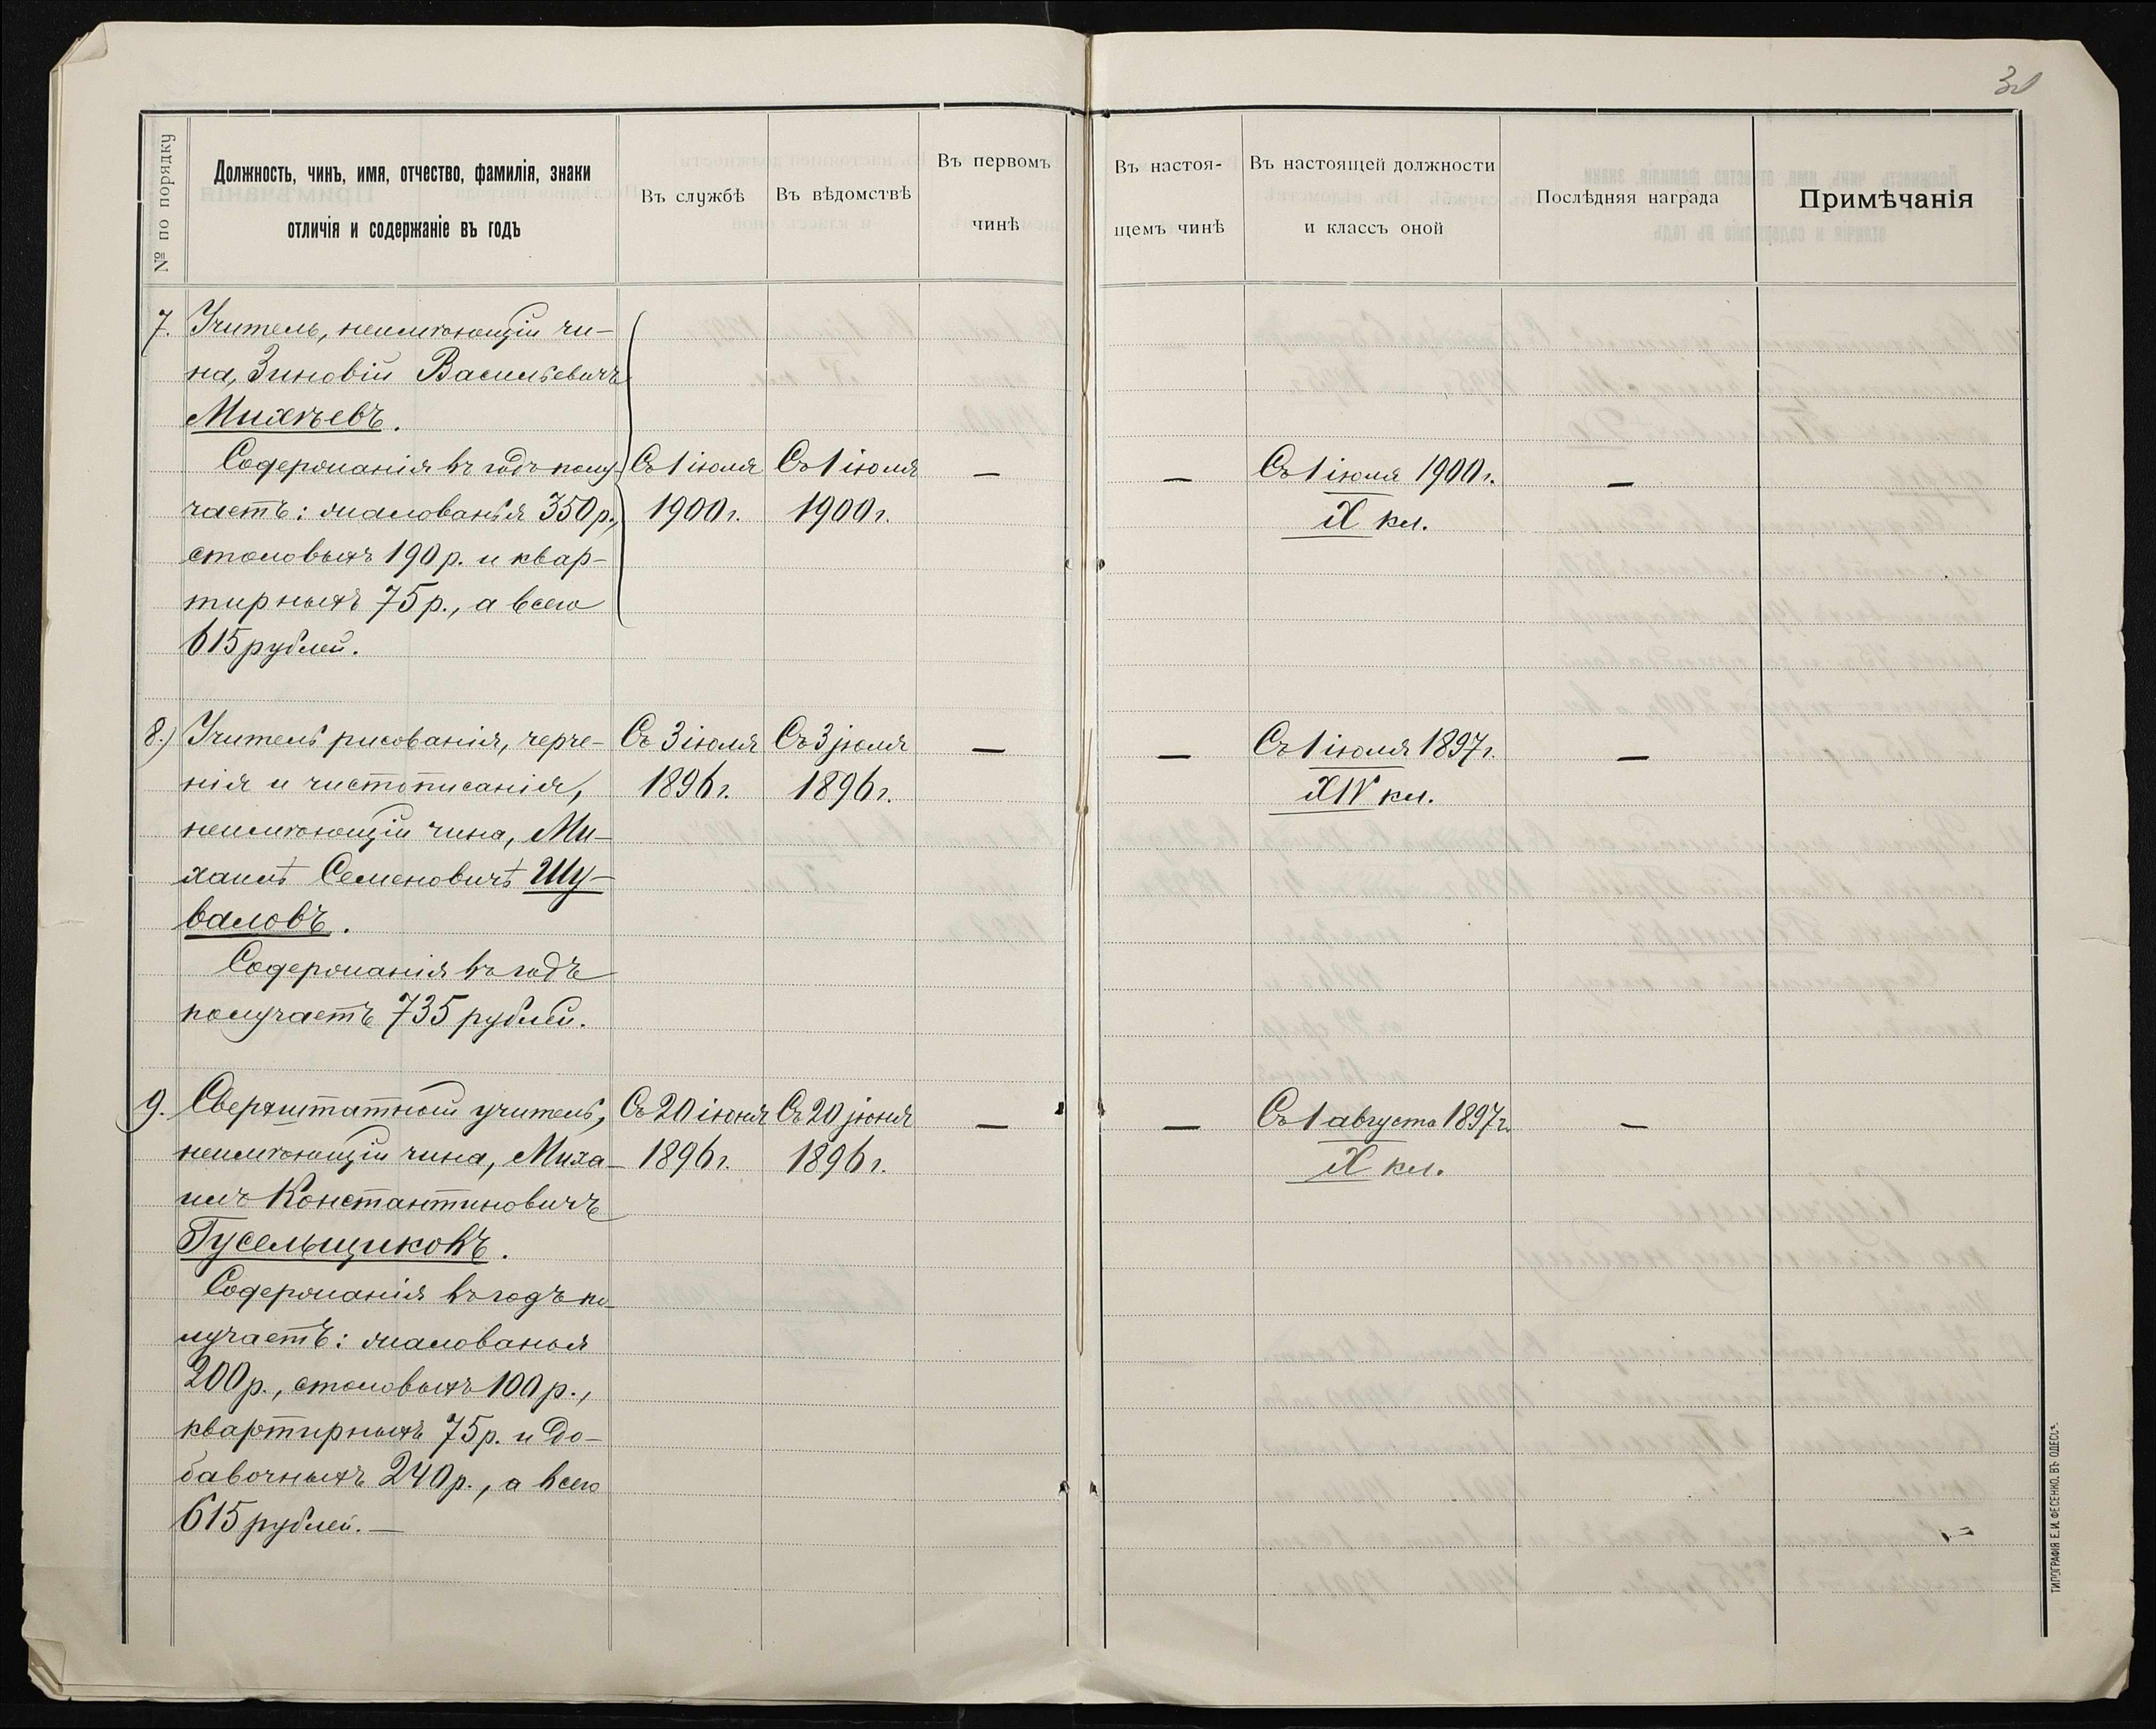 30
№ по порядку
Должность, чинъ, имя, отчество, фамилія, знаки
отличія и содержаніе въ годъ
Въ службѣ
Въ вѣдомствѣ
Въ первомъ
чинѣ
Въ настоя-
щемъ чинѣ
Въ настоящей должности
и классъ оной
Послѣдняя награда
Примѣчанія
7. Учитель, неимѣющій чи-
на, Зиновій Васильевичъ
Михѣевъ.
Содержанія въ годъ полу-
чаетъ: жалованья 350 р.,
столовыхъ 190 р. и квар-
тирныхъ 75 р., а всего
615 рублей.
Съ 1 іюля
1900 г.
Съ 1 іюля
1900 г.
—
—
Съ 1 іюля 1900 г.
X кл.
—
8.) Учитель рисованія, черче-
нія и чистописанія,
неимѣющій чина, Ми-
хаилъ Семеновичъ Шу-
валовъ.
Содержанія въ годъ
получаетъ 735 рублей.
Съ 3 іюля
1896 г.
Съ 3 іюля
1896 г.
—
—
Съ 1 іюля 1897 г.
XIV кл.
—
9. Сверхштатный учитель,
неимѣющій чина, Миха-
илъ Константиновичъ
Гусельщиковъ.
Содержанія въ годъ по-
лучаетъ: жалованья
200 р., столовыхъ 100 р.,
квартирныхъ 75 р. и до-
бавочныхъ 240 р., а всего
615 рублей. —
Съ 20 іюня
1896 г.
Съ 20 іюня
1896 г.
—
—
Съ 1 августа 1897 г.
X кл.
—
ТИПОГРАФІЯ Е. И. ФЕСЕНКО, ВЪ ОДЕССѢ.